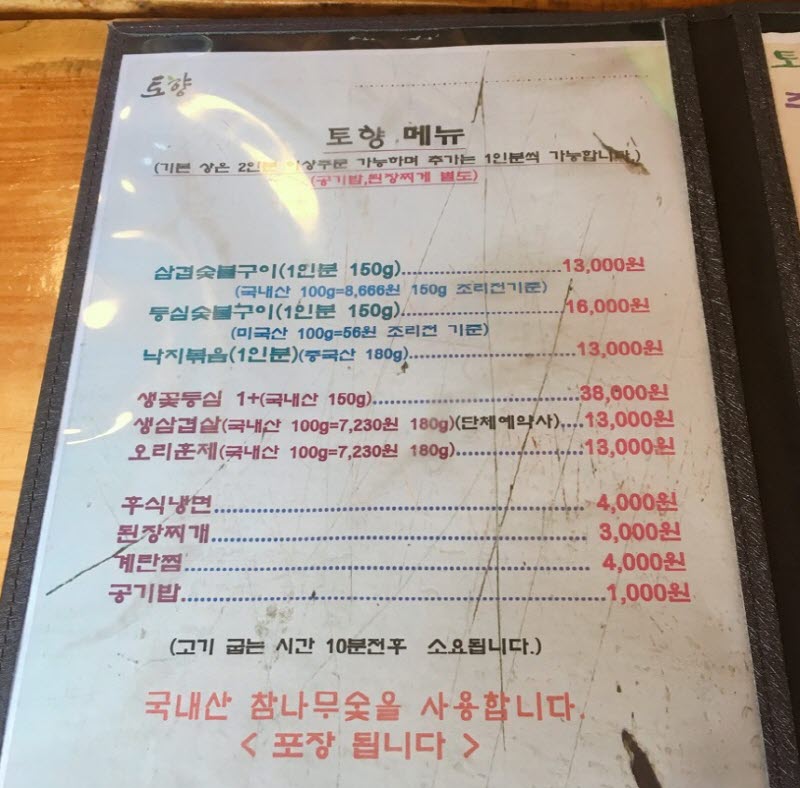 토향
토향 메뉴
(기본 상은 2인분 이상주문 가능하며 추가는 1인분씩 가능합니다.)
(공기밥,된장찌게 별도)
삼겹숯불구이(1인분 150g)..............................13,000원
(국내산 100g=8,666원 150g 조리전기준)
등심숯불구이(1인분 150g)..............................16,000원
(미국산 100g=56원 조리전 기준)
낙지볶음(1인분)(중국산 180g)..............................13,000원
생꽃등심 1+(국내산 150g)..............................38,000원
생삼겹살(국내산 100g=7,230원 180g)(단체예약사)....13,000원
오리훈제(국내산 100g=7,230원 180g)....................13,000원
후식냉면..............................4,000원
된장찌개..............................3,000원
계란찜..............................4,000원
공기밥..............................1,000원
(고기 굽는 시간 10분전후 소요됩니다.)
국내산 참나무숯을 사용합니다.
< 포장 됩니다 >
토